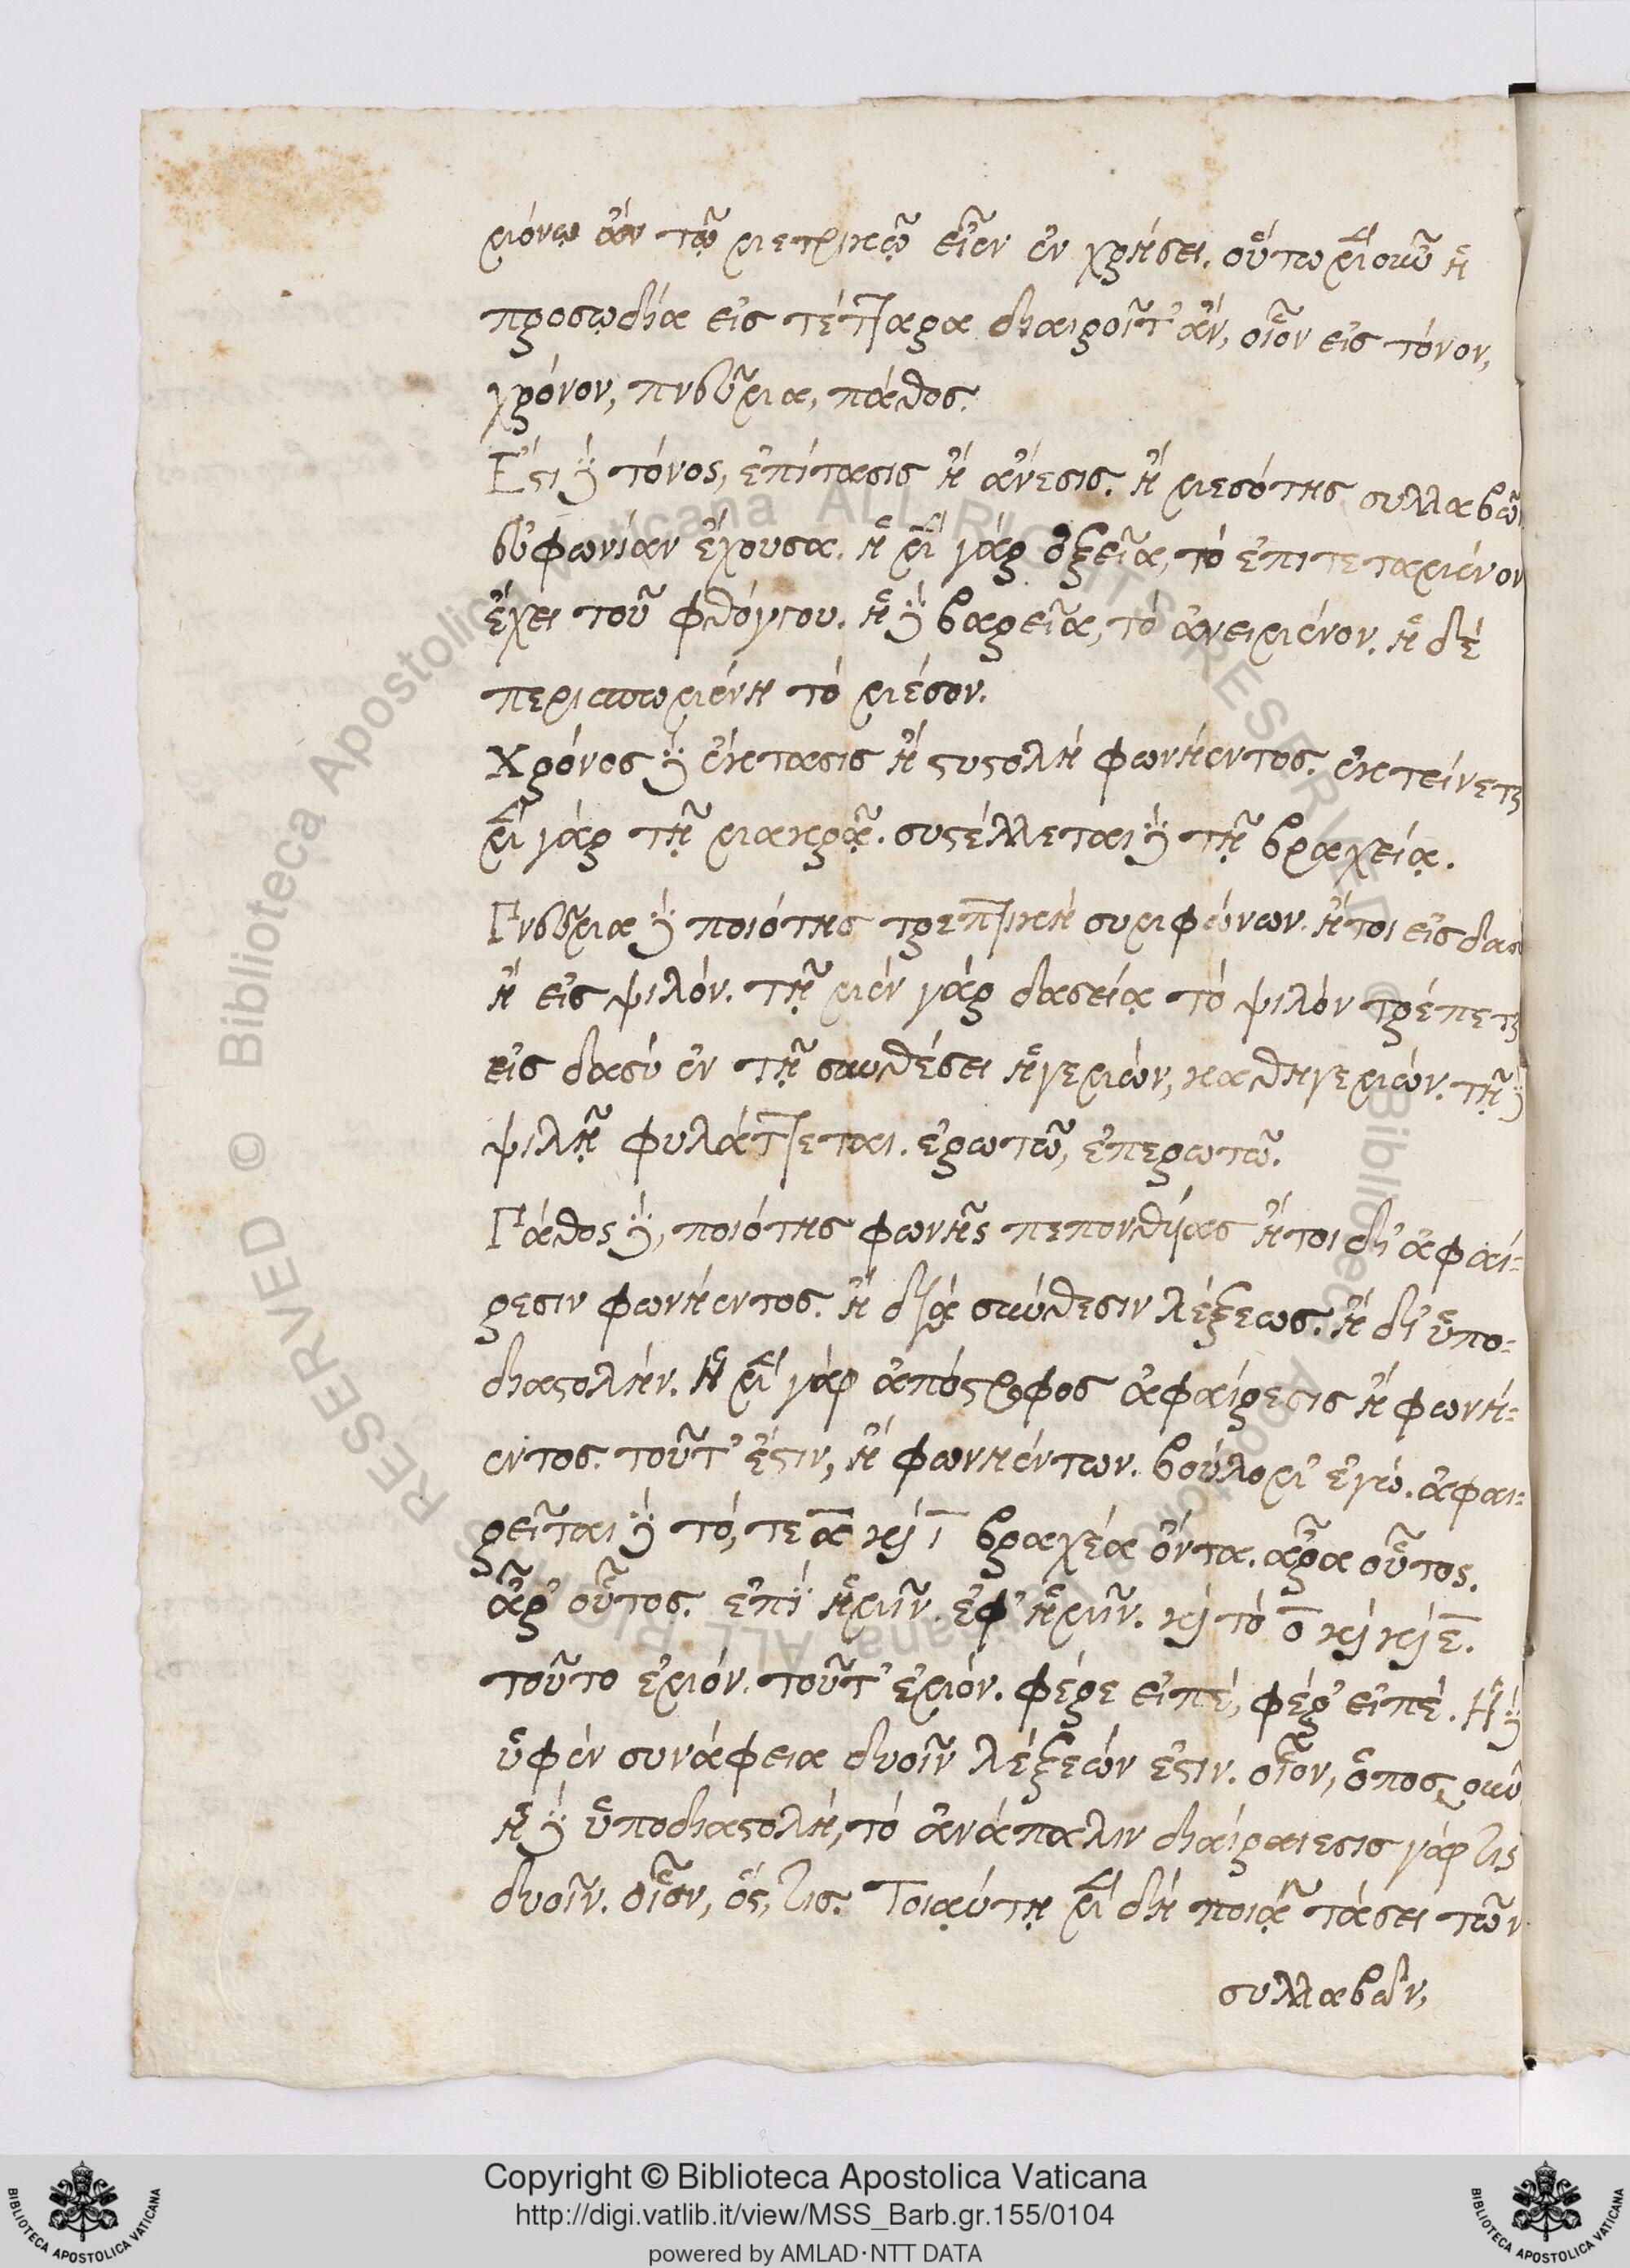 μόνῳ ἀν τῷ μετρικῷ εἶεν ἐν χρήσει. οὕτω μὲν οὖν ἡ
προσῳδία εἰς τέτταρα διαιροῖτ' ἄν, οἷον εἰς τόνον,
χρόνον, πνεῦμα, πάθος.
Ἔστι δὲ τόνος, ἐπίτασις ἢ ἄνεσις. ἢ μεσότης συλλαβῶν
εὐφωνίαν ἔχουσα. ἡ μὲν γὰρ ὀξεῖα, τὸ ἐπιτεταμένον
ἔχει τοῦ φθόγγου. ἡ δὲ βαρεῖα, τὸ ἀνειμένον. ἡ δὲ
περισπωμένη τὸ μέσον.
Χρόνος δὲ ἔκτασις ἢ συστολὴ φωνήεντος. ἐκτείνεται
μὲν γὰρ τῇ μακρᾷ. συστέλλεται δὲ τῇ βραχείᾳ.
Πνεῦμα δὲ ποιότης τρεπτικὴ συμφώνων. ἤτοι εἰς δασὺ
ἢ εἰς ψιλόν. τῇ μὲν γὰρ δασείᾳ τὸ ψιλὸν τρέπεται
εἰς δασὺ ἐν τῇ συνθέσει ἡγεμών, καθηγεμών. τῇ δὲ
ψιλῇ φυλάττεται. ἐρωτῶ, ἐπερωτῶ.
Πάθος δέ, ποιότης φωνῆς πεπονθυίας ἤτοι δι' ἀφαί-
ρεσιν φωνήεντος. ἢ διὰ σύνθεσιν λέξεως. ἢ δι' ὑπο-
διαστολήν. Ἡ μὲν γὰρ ἀπόστροφος ἀφαίρεσις ἢ φωνή-
εντος. τοῦτ' ἔστιν, ἢ φωνηέντων. βούλομ' ἐγώ. ἀφαι-
ρεῖται δὲ τό, τε α καὶ ι βραχέα ὄντα. ἆρα οὗτος.
ἆρ' οὗτος. ἐπὶ ἡμῖν. ἐφ' ἡμῖν. καὶ τὸ ο καὶ καὶ ε.
τοῦτο ἐμόν. τοῦτ' ἐμόν. φέρε εἰπέ, φέρ' εἰπέ. Ἡ δὲ
ὑφὲν συνάφεια δυοῖν λέξεών ἐστιν. οἷον,
ἡ δὲ ὑποδιαστολή, τὸ ἀνάπαλιν διαίραιεσις γάρ τις
δυοῖν. οἷον, ὅς, τις. Τοιαύτῃ μὲν δὴ ποιᾷ τάσει τῶν
συλλαβῶν,
Copyright © Biblioteca Apostolica Vaticana
http://digi.vatlib.it/view/MSS_Barb.gr.155/0104
powered by AMLAD·NTT DATA